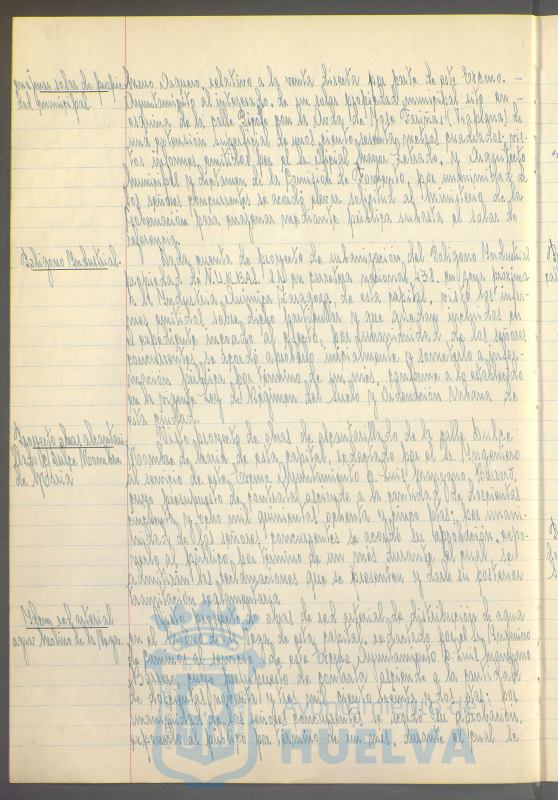 enajenar solar de propie-
dad municipal.
relativo a la venta directa por parte de este Excmo.
Ayuntamiento al interesado, de un solar propiedad municipal sito en
esquina de la calle con la Avda. de
una extensión superficial de cuadrados, vis-
tos informes emitidos por el Oficial Mayor Letrado, y Arquitecto
Municipal y dictamen de la Comisión de Fomento, por unanimidad de
los señores concurrentes se acordó elevar solicitud al Ministerio de la
Gobernación para enajenar mediante pública subasta el solar de
referencia.
Polígono Industrial.
Dada cuenta de proyecto de urbanización del Polígono Industrial
propiedad de sito en carretera nacional 435, en zona próxima
a la Industria Química de esta capital, visto los infor-
mes emitidos sobre dicho particular y que quedan incluidos en
el expediente incoado al efecto, por unanimidad de los señores
concurrentes, se acordó aprobarlo inicialmente y someterlo a infor-
mación pública, por término de un mes, conforme a lo establecido
en la vigente Ley de Régimen del Suelo y Ordenación Urbana de
esta ciudad.
Proyecto obras alcantari-
llado c/ Dulce Nombre
de María
Visto proyecto de obras de alcantarillado de la calle Dulce
Nombre de María de esta capital, redactado por el Sr. Ingeniero
al servicio de este Excmo. Ayuntamiento D. Luis Manzano
cuyo presupuesto de contrata asciende a la cantidad de doscientas
cincuenta y ocho mil quinientas ochenta y cinco ptas; por unani-
midad de los señores concurrentes se acordó su aprobación, expo-
nerlo al público, por término de un mes durante el cual se
admitirán las reclamaciones que se presenten y darle su posterior
tramitación reglamentaria.
Idem red arterial
agua Marina de la Vega.
Visto proyecto de obras de red arterial de distribución de agua
en el de esta capital, redactado por el Sr. Ingeniero
de Caminos al servicio de este Excmo. Ayuntamiento D. Luis Manzano
cuyo presupuesto de contrata asciende a la cantidad
de mil ciento treinta y dos ptas; por
unanimidad de los señores concurrentes se acordó su aprobación,
exponerlo al público por término de un mes, durante el cual se
Ayuntamiento de
HUELVA